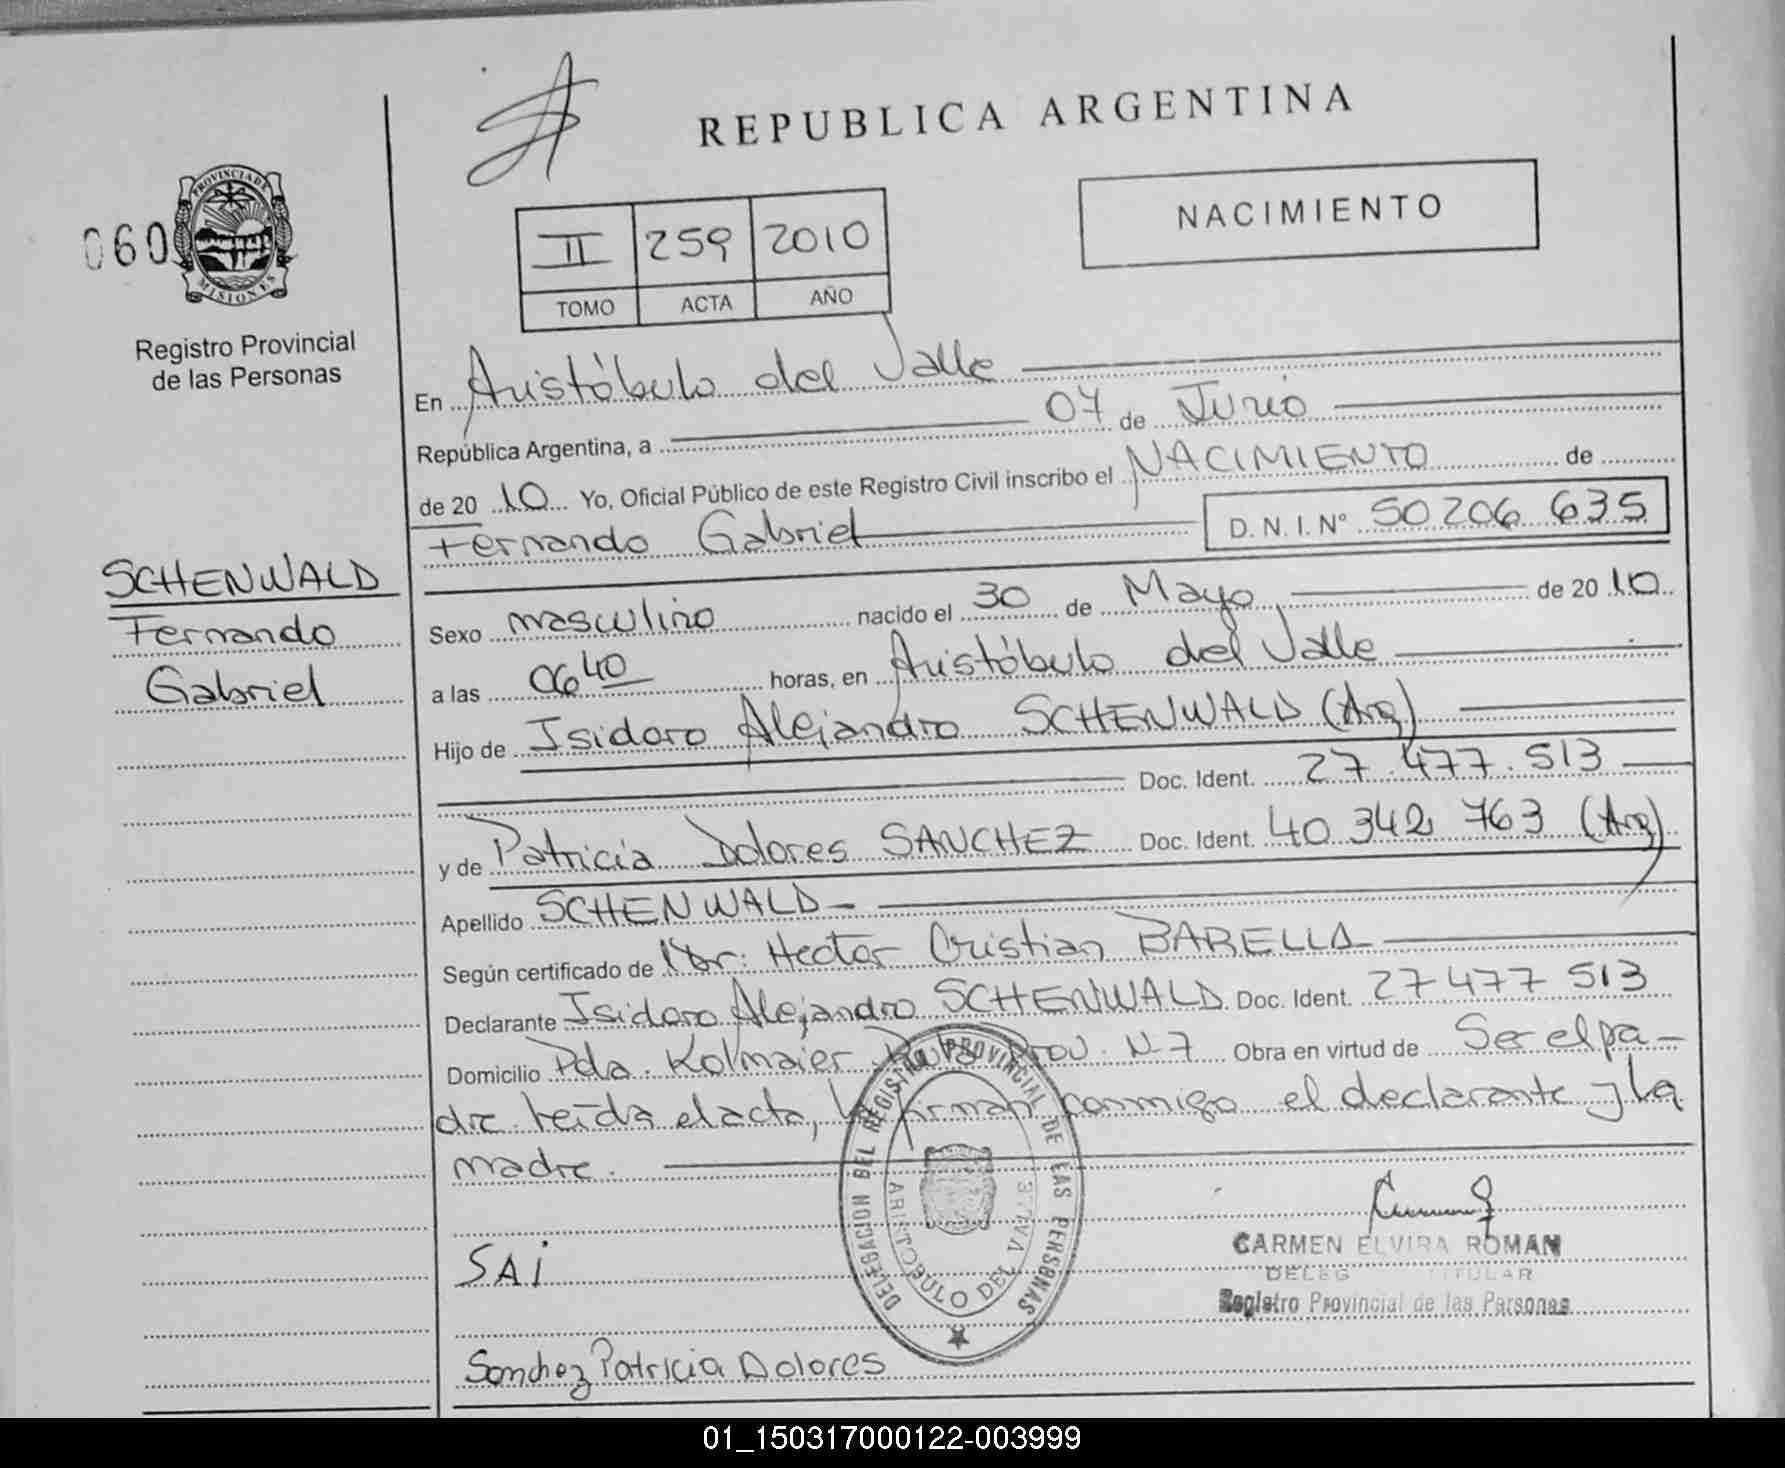 REPUBLICA ARGENTINA
NACIMIENTO
060
PROVINCIA DE
MISIONES
Registro Provincial
de las Personas
II 259 2010
TOMO ACTA AÑO
En Aristóbulo del Valle
República Argentina, a 07 de Junio
de 20 10 Yo, Oficial Público de este Registro Civil inscribo el NACIMIENTO de
Fernando Gabriel D. N. I. Nº 50 206 635
SCHENWALD
Fernando
Gabriel
Sexo masculino nacido el 30 de Mayo de 20 10
a las 06 40 horas, en Aristóbulo del Valle
Hijo de Isidoro Alejandro SCHENWALD (Arg)
Doc. Ident. 27.477.513
y de Patricia Dolores SANCHEZ Doc. Ident. 40 342 763 (Arg)
Apellido SCHENWALD
Según certificado de Dr: Hector Cristian BARELLA
Declarante Isidoro Alejandro SCHENWALD Doc. Ident. 27 477 513
Domicilio Pda. Kolmaier Ruta Prov. N-7 Obra en virtud de Ser el pa-
dre leída el acta, firman conmigo el declarante y la
madre.
DELEGACION DEL REGISTRO PROVINCIAL DE LAS PERSONAS
ARISTOBULO DEL VALLE
CARMEN ELVIRA ROMAN
DELEG TITULAR
Registro Provincial de las Personas
SAi
Sanchez Patricia Dolores
01_150317000122-003999